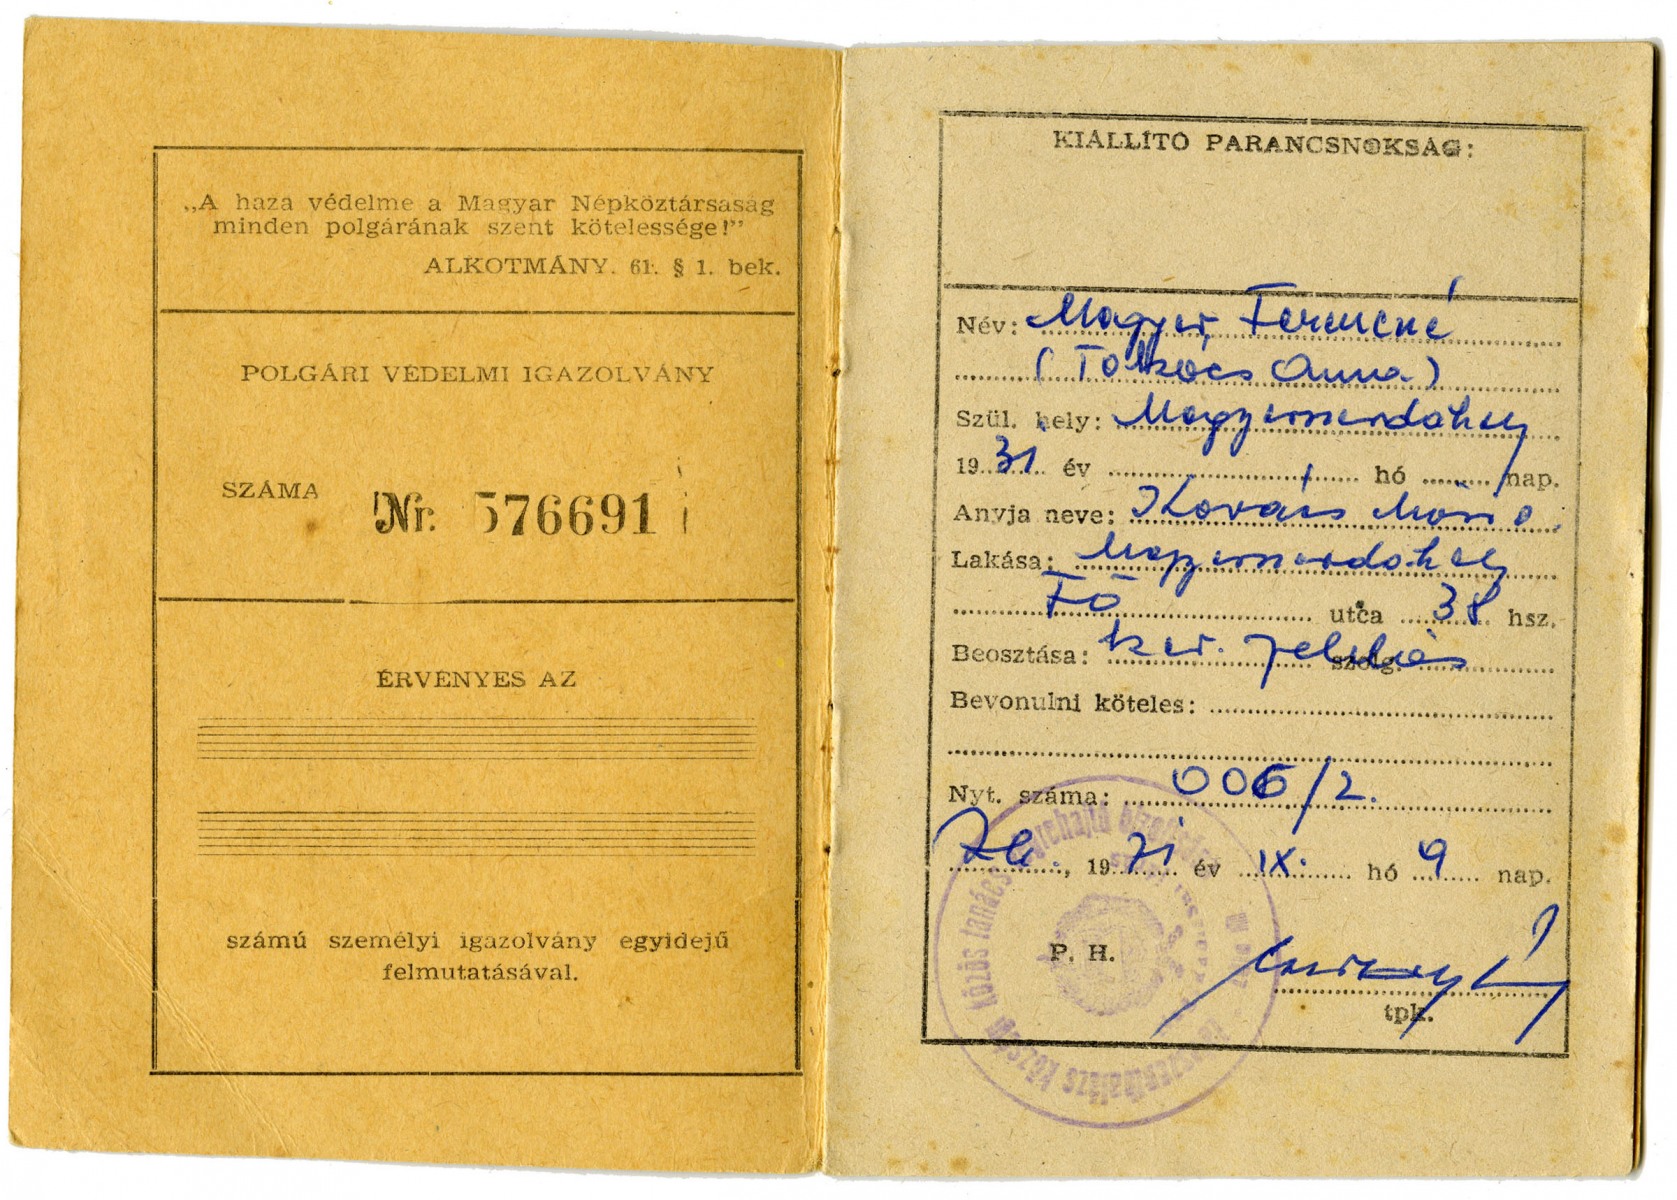 „A haza védelme a Magyar Népköztársaság
minden polgárának szent kötelessége!”
ALKOTMÁNY. 61. § 1. bek.
POLGÁRI VÉDELMI IGAZOLVÁNY
SZÁMA Nr. 576691
ÉRVÉNYES AZ
számú személyi igazolvány egyidejű
felmutatásával.
KIÁLLÍTÓ PARANCSNOKSÁG:
Név: Magyar Ferencné
(Takács Anna)
Szül. hely: Magyarnándor
1931 év hó nap.
Anyja neve: Kovács Mária
Lakása:
Fő utca 38 hsz.
Beosztása: szolg.
Bevonulni köteles:
Nyt. száma: 006/2.
, 1971 év IX. hó 9 nap.
P. H.
tpk.